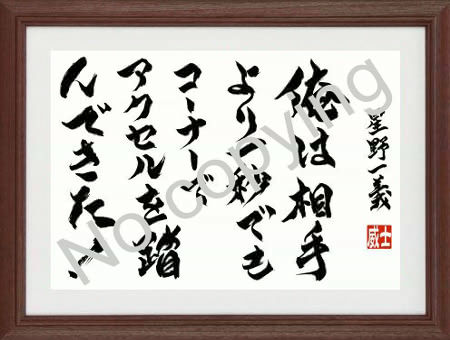 星野一義
威士
俺は相手
より一秒でも
コーナーで
アクセルを踏
んできた
No copying